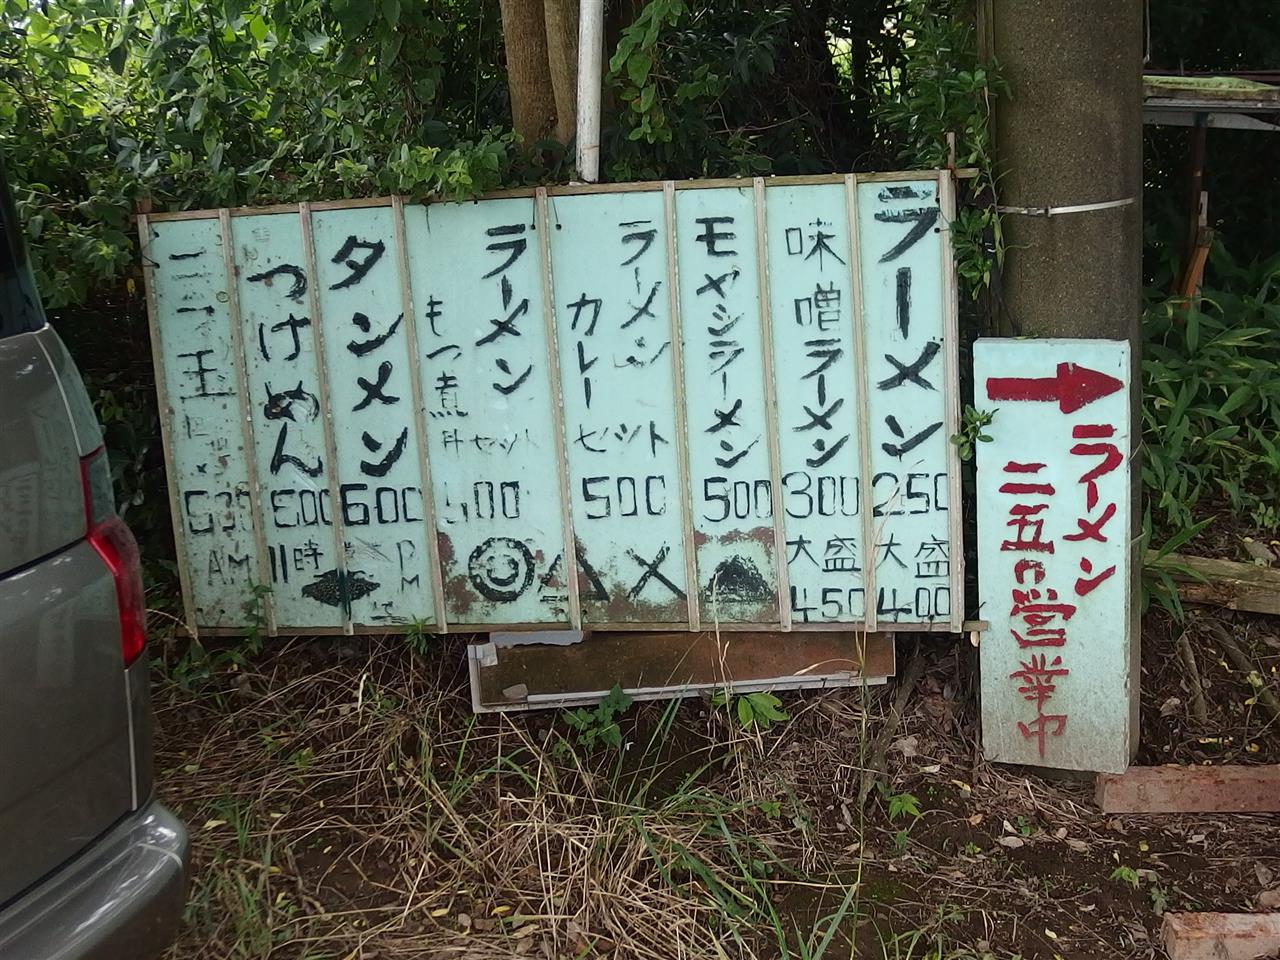 ラーメン
250
大盛
400
味噌ラーメン
300
大盛
450
モヤシラーメン
500
ラーメン
カレー
セット
500
ラーメン
もつ煮
セット
タンメン
600
PM
つけめん
11時
AM
ラーメン
二五〇営業中